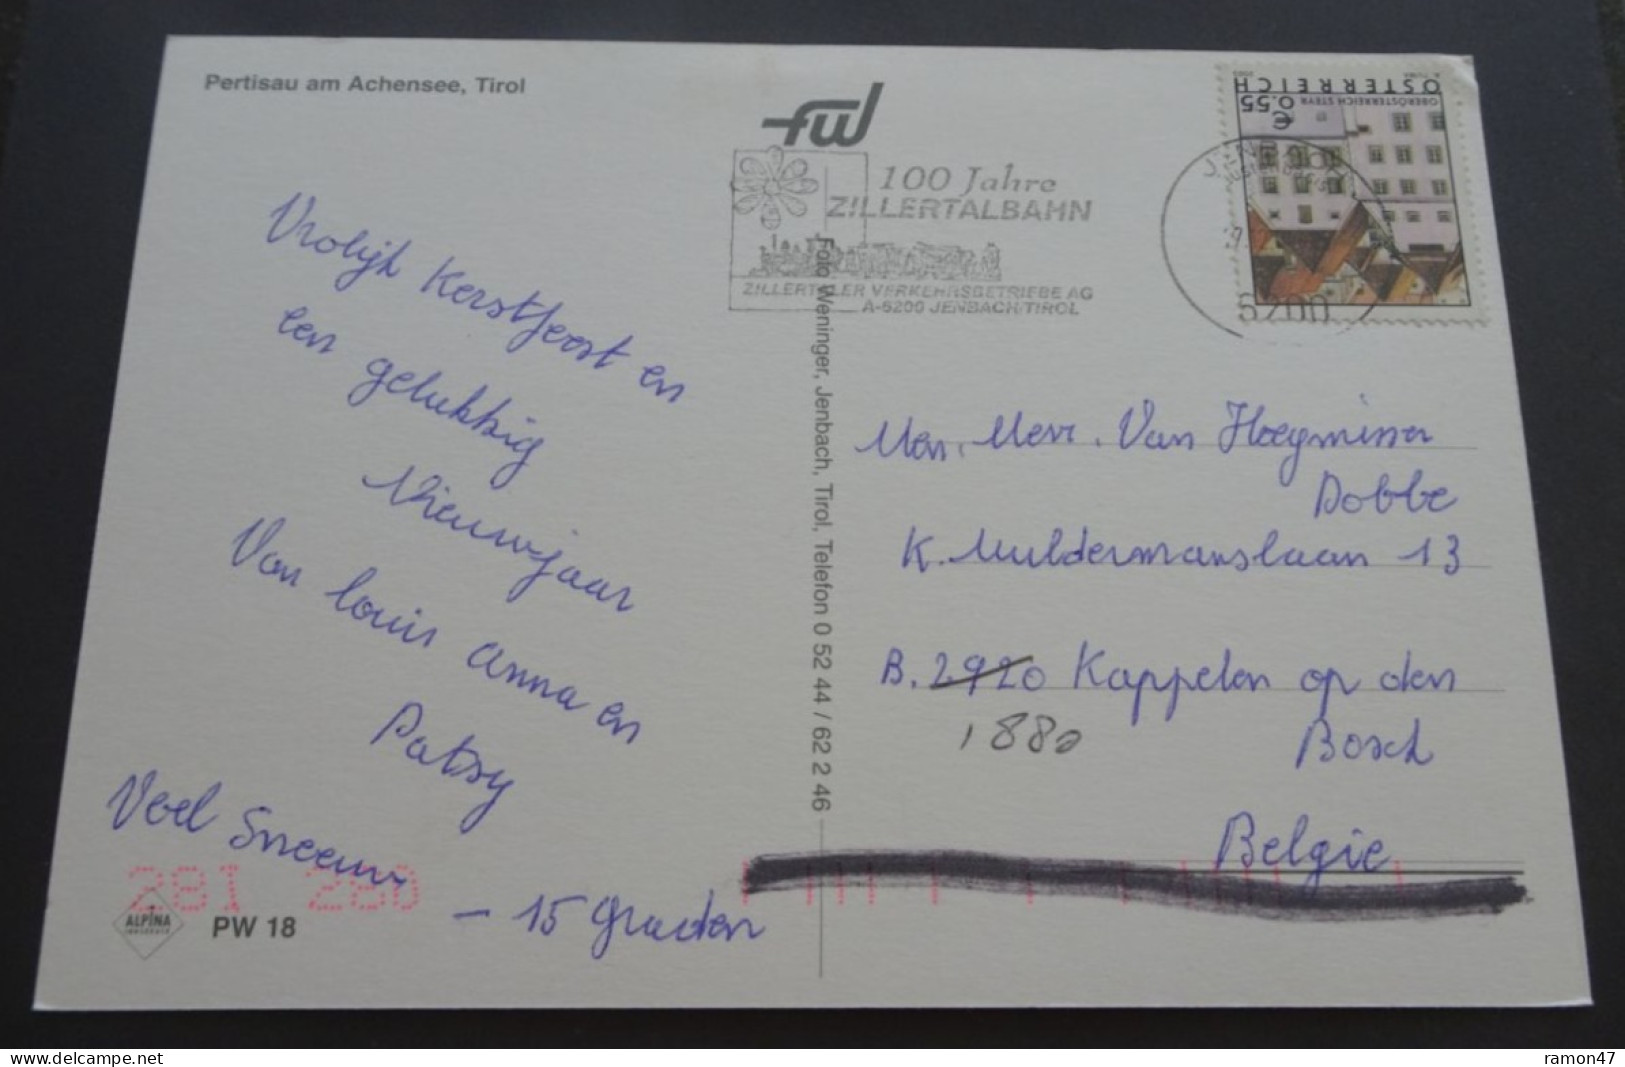 Pertisau am Achensee, Tirol
fwl
100 Jahre
ZILLERTALBAHN
ZILLERTALER VERKEHRSBETRIEBE AG
A-6200 JENBACH/TIROL
ÖSTERREICH
OBERÖSTERREICH STEYR
€ 0.55
6200
Vrolijk Kerstfeest en
een gelukkig
Nieuwjaar
Van Louis Anna en
Patsy
Veel Sneeuw
- 15 Graden
Foto Weninger, Jenbach, Tirol, Telefon 0 52 44 / 62 2 46
Men. Mevr. Van Hoeymissen
Dobbe
K. Muldermanslaan 13
B. 2920 Kappelen op den
1880
Bosch
Belgie
281 280
ALPINA
INNSBRUCK
PW 18
www.delcampe.net
ramon47